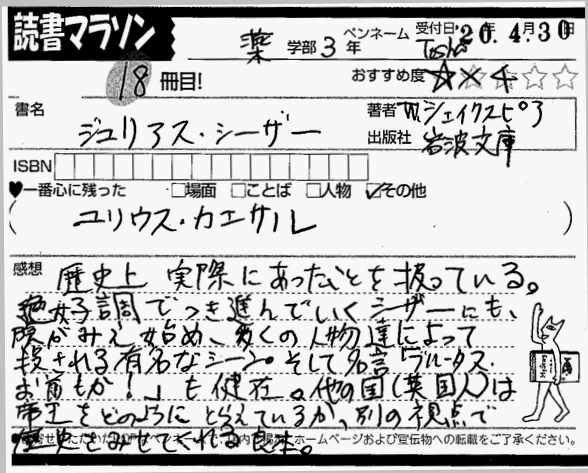 読書マラソン
薬 学部 3 年 ペンネーム Tosho 受付日: '20年 4月30日
18 冊目! おすすめ度
書名 ジュリアス・シーザー
著者 W.シェイクスピア
出版社 岩波文庫
ISBN
♥一番心に残った □場面 □ことば □人物 ☑その他
( ユリウス・カエサル )
感想 歴史上 実際にあったことを扱っている。
絶好調でつき進んでいくシーザーにも、
陰がみえ始め、多くの人物達によって
殺される有名なシーン。そして名言「ブルータス・
お前もか!」も健在。他の国(英国人)は
帝王をどのようにとらえているか、別の視点で
歴史をみせてくれる良本。
ホームページおよび宣伝物への転載をご了承ください。